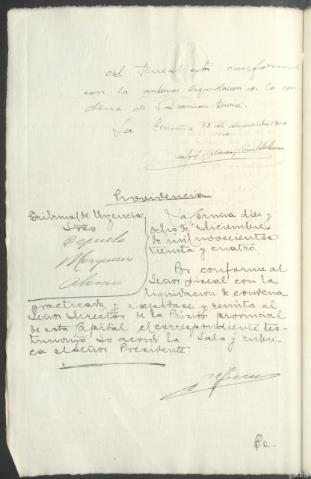 El Fiscal está conforme
con la anterior liquidación de la con
dena de Ramon
La Coruña 18 de diciembre 1934
Providencia
Tribunal de Urgencia
Sres
Cepuelo
Marquez
La Coruña diez y
ocho de diciembre
de mil novecientos
treinta y cuatro.
Por conforme al
Señor fiscal con la
liquidacion de condena
practicada y expidase y remita al
Señor Director de la Prisión provincial
de esta Capital el correspondiente tes-
timonio. Lo acordó la Sala y rubri-
ca el Señor Presidente.